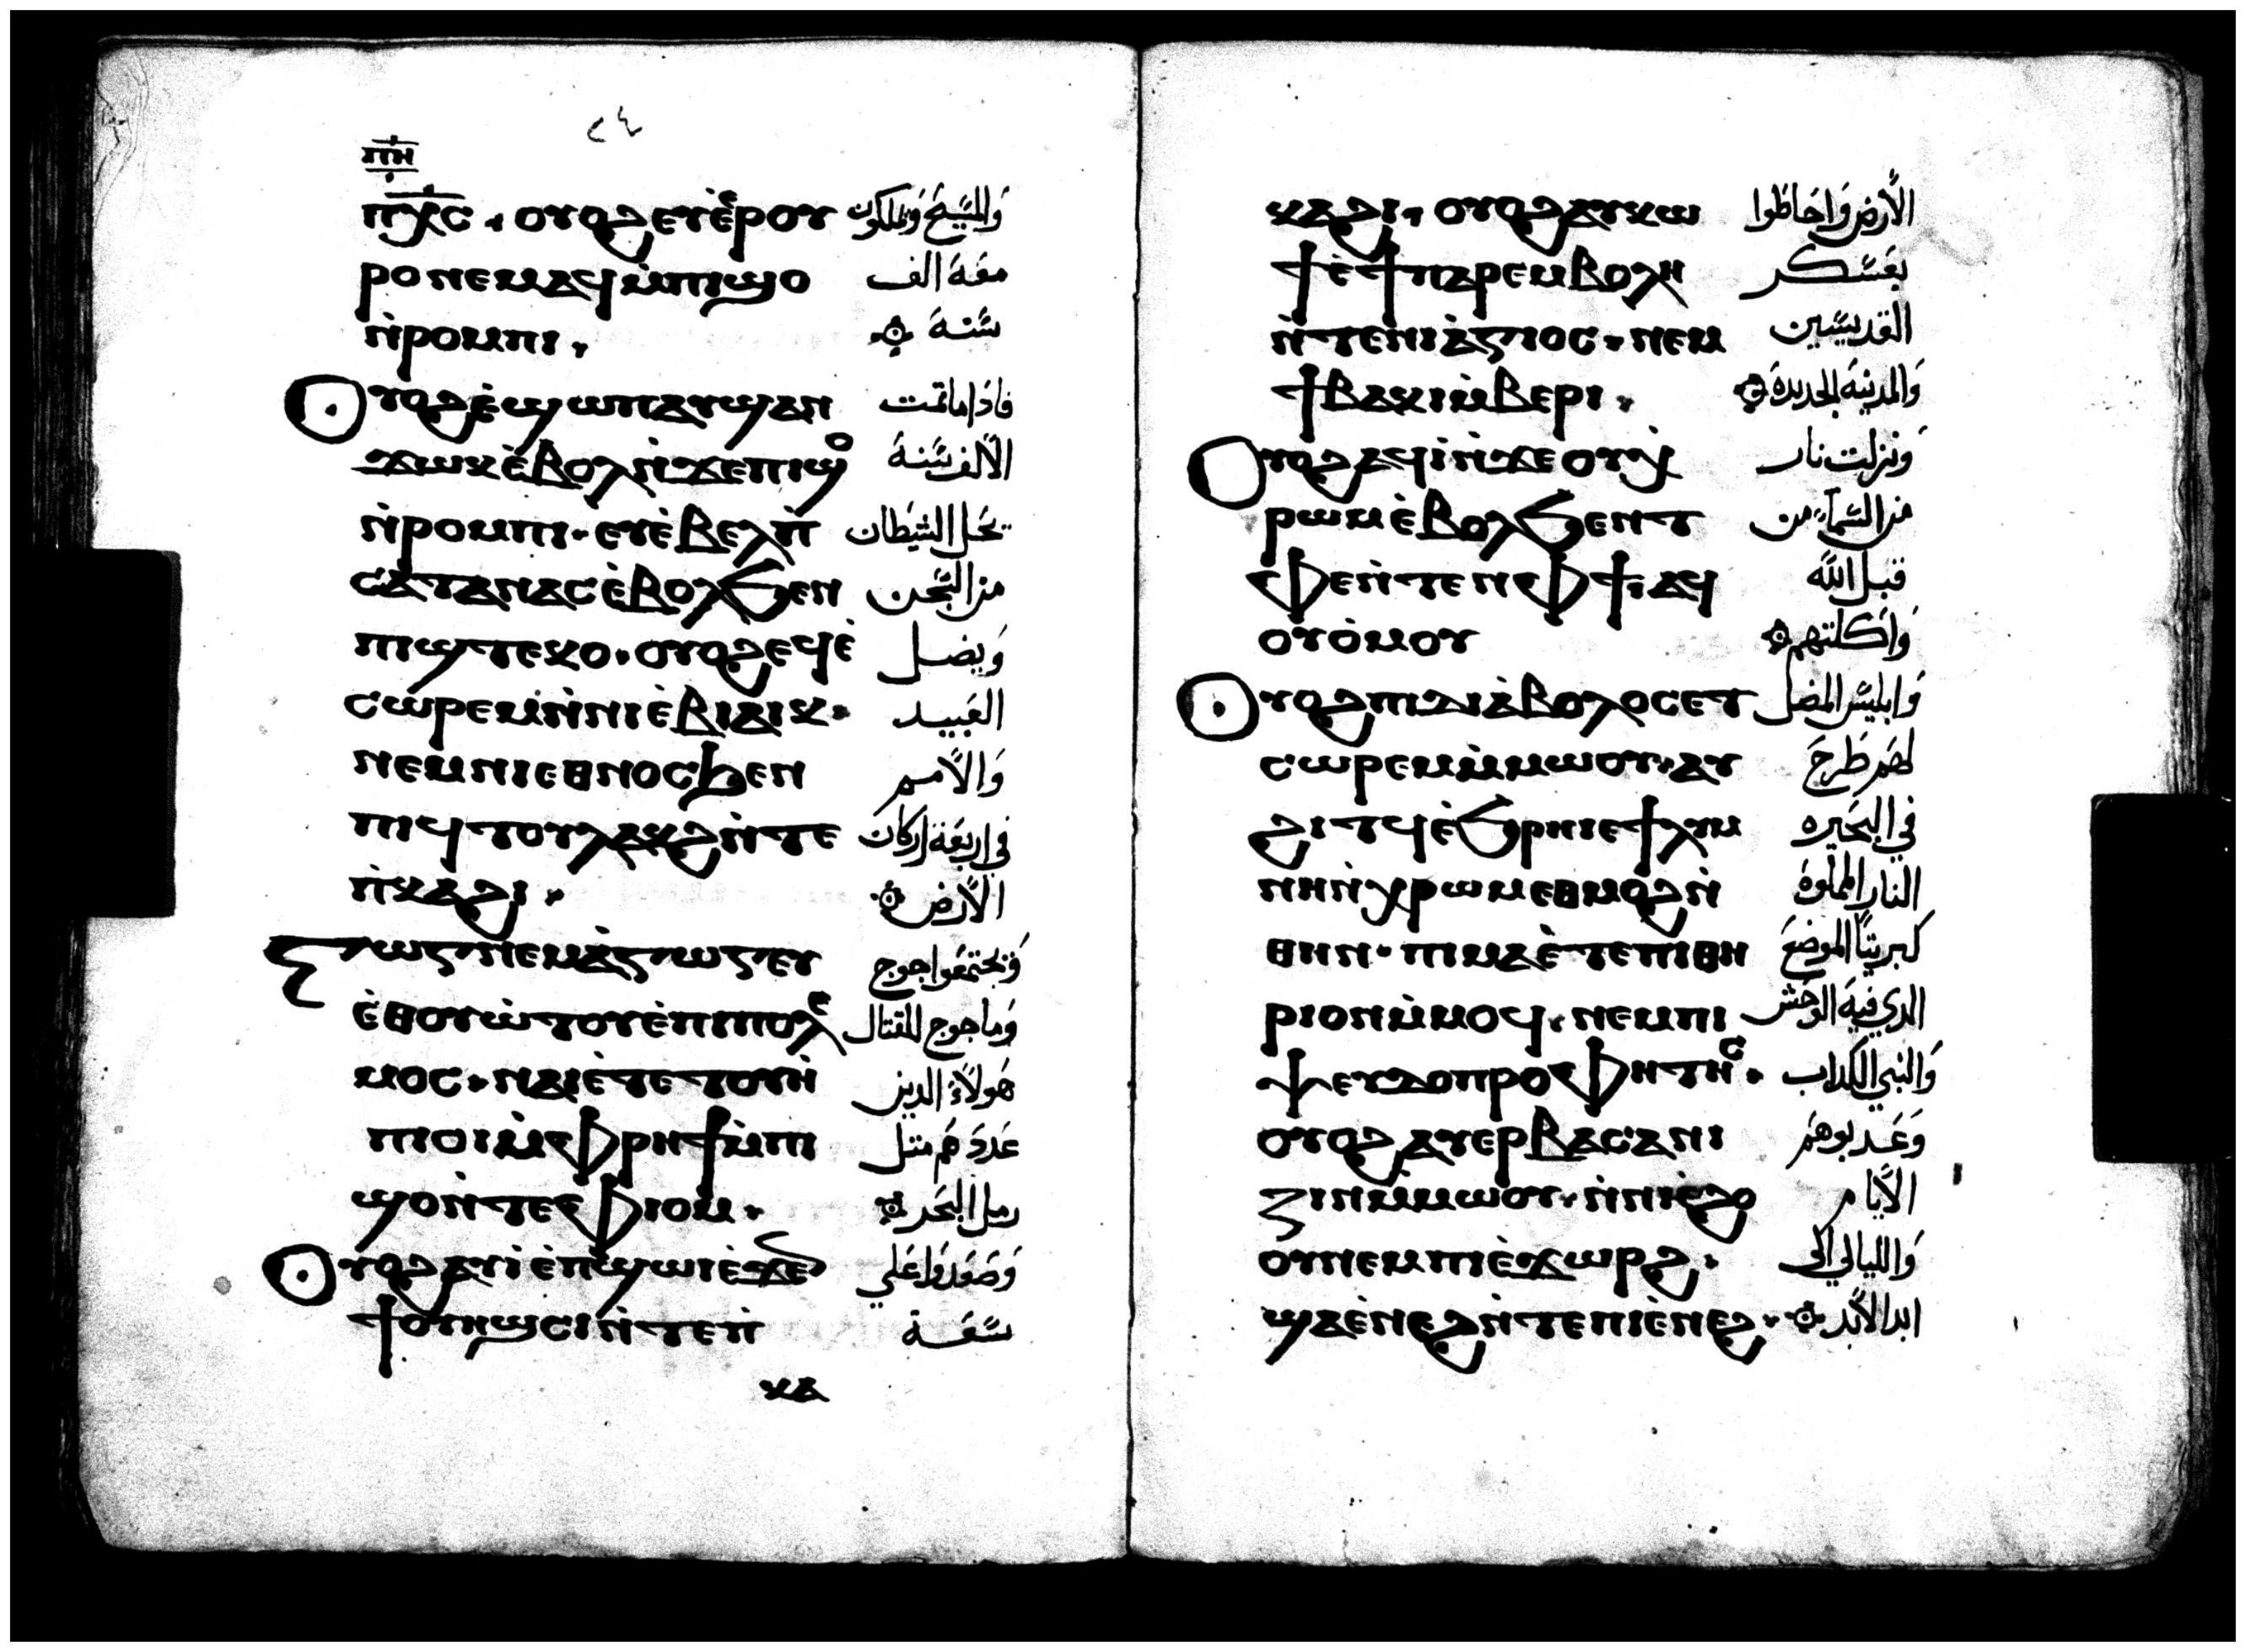 ⲡⲏ
ⲡⲭⲥ . ⲟⲩⲟϩ ⲉⲩⲉ̀ⲣⲟⲩ وَالمسَيح وَيملكون
ⲣⲟ ⲛⲉⲙⲁϥ ⲙ̀ⲡⲓϣⲟ معَهَ الف
ⲛ̀ⲣⲟⲙⲡⲓ . سَنة
ⲟⲩⲟϩ ⲉ̀ϣⲱⲡ ⲁⲩϣⲁⲛ فاذَا ما تمت
ϫⲱⲕ ⲉ̀ⲃⲟⲗ ⲛ̀ϫⲉ ⲡⲓϣⲟ الالف سَنة
ⲛ̀ⲣⲟⲙⲡⲓ . ⲉⲩⲉ̀ⲃⲉⲗ ⲡ̀ يحَل الشيَطان
ⲥⲁⲧⲁⲛⲁⲥ ⲉ̀ⲃⲟⲗϧⲉⲛ من السَجن
ⲡⲓϣⲧⲉⲕⲟ . ⲟⲩⲟϩ ⲉϥⲉ̀ وَيضل
ⲥⲱⲣⲉⲙ ⲛ̀ⲛⲓⲉ̀ⲃⲓⲁⲓⲕ . العَبيد
ⲛⲉⲙ ⲛⲓⲉⲑⲛⲟⲥ ϧⲉⲛ وَالامم
ⲡⲓϥⲧⲟⲩ ⲗⲁⲕϩ ⲛ̀ⲧⲉ في اربعَة اركان
ⲛ̀ⲕⲁϩⲓ . الارض
ⲅⲱⲅ ⲛⲉⲙ ⲁ̀ⲅⲱⲅ ⲉⲩ وَيجتمعَوا جوج
ⲉ̀ⲑⲟⲩⲱ̀ⲧⲟⲩ ⲉ̀ⲡⲓⲡⲟⲗⲉ وَماجوج للقتال
ⲙⲟⲥ . ⲛⲁⲓ ⲉ̀ⲧⲉ ⲧⲟⲩⲏ̀ هَولاء الدين
ⲡⲓ ⲟⲓ ⲙ̀ⲫⲣⲏϯ ⲙ̀ⲡⲓ عَددَهَم متل
ϣⲟ ⲛ̀ⲧⲉ ⲫⲓⲟⲙ . رمل البحَر
ⲟⲩⲟϩ ⲁⲩⲓ̀ ⲉ̀ⲡϣⲱⲓ ⲉ̀ϫⲉⲛ وَصَعَدوَا عَلي
ϯⲟⲩⲏϣⲥⲓ ⲛ̀ⲧⲉ ⲡ̀ سَعَة
ⲕⲁ
ⲕⲁϩⲓ . ⲟⲩⲟϩ ⲁⲩⲕⲱ الارض وَاحَاطوا
ϯ ⲉ̀ϯⲡⲁⲣⲉⲙⲃⲟⲗⲏ بعَسَكر
ⲛ̀ⲧⲉ ⲛⲓⲁ̀ⲅⲓⲟⲥ . ⲛⲉⲙ القديسَين
ϯⲃⲁⲕⲓ ⲙ̀ⲃⲉⲣⲓ . وَالمدينهَ الجديدة
ⲟⲩⲟϩ ⲁϥⲓ̀ ⲛ̀ϫⲉ ⲟⲩⲭ̀ وَنزلت نار
ⲣⲱⲙ ⲉ̀ⲃⲟⲗϧⲉⲛ ⲧ من السَماء من
ⲫⲉ ⲛ̀ⲧⲉⲛ ⲫϯ : ⲁϥ قبل الله
ⲟⲩⲟ̀ⲙⲟⲩ وَاكلتهم
ⲟⲩⲟϩ ⲡⲓⲇⲓⲁ̀ⲃⲟⲗⲟⲥ ⲉⲧ وَابليسَ المضل
ⲥⲱⲣⲉⲙ ⲙ̀ⲙⲱⲟⲩ . ⲁⲩ لهَم طَرحَ
ϩⲓⲧϥ ⲉ̀ϧⲣⲏⲓ ⲉϯⲗⲩⲙ في البحَيره
ⲛⲏ ⲛ̀ⲭⲣⲱⲙ ⲉⲑⲙⲟϩ ⲛ̀ النار المملوة
ⲑⲏⲛ . ⲡⲓⲙⲁ ⲉ̀ⲧⲉ ⲡⲓⲑⲏ كبريتاً الموضعَ
ⲣⲓⲟⲛ ⲙ̀ⲙⲟϥ . ⲛⲉⲙ ⲡⲓ الدي فيهَ الوَحَش
ⲯⲉⲩⲇⲟⲡⲣⲟⲫⲏⲧⲏⲥ . وَالنبي الكداب
ⲟⲩⲟϩ ⲁⲩⲉⲣⲃⲁⲥⲁⲛⲓ وَعَدبوهَم
ⲍⲓⲛ ⲙ̀ⲙⲱⲟⲩ . ⲛ̀ⲛⲓⲉ̀ϩⲟ الايام
ⲟⲩ ⲛⲉⲙ ⲡⲓⲉ̀ϫⲱⲣϩ . وَالليالي الى
ϣⲁ ⲉ̀ⲛⲉϩ ⲛ̀ⲧⲉ ⲡⲓⲉ̀ⲛⲉϩ . ابد الابد